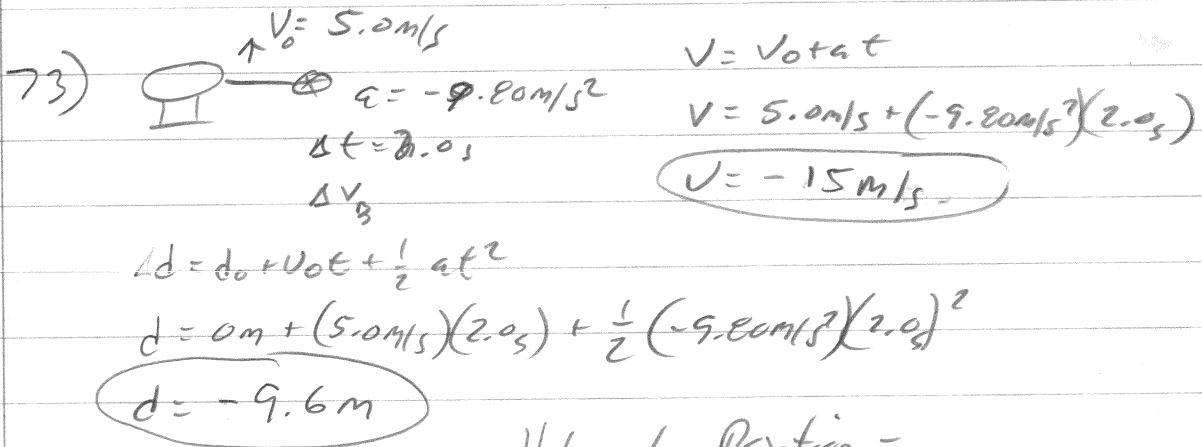 73)
V₀ = 5.0m/s
a = -9.80m/s²
Δt = 2.0s
ΔV_B
V = V₀ + at
V = 5.0m/s + (-9.80m/s²)(2.0s)
V = -15m/s
Δd = d₀ + V₀t + 1/2 at²
d = 0m + (5.0m/s)(2.0s) + 1/2 (-9.80m/s²)(2.0s)²
d = -9.6m